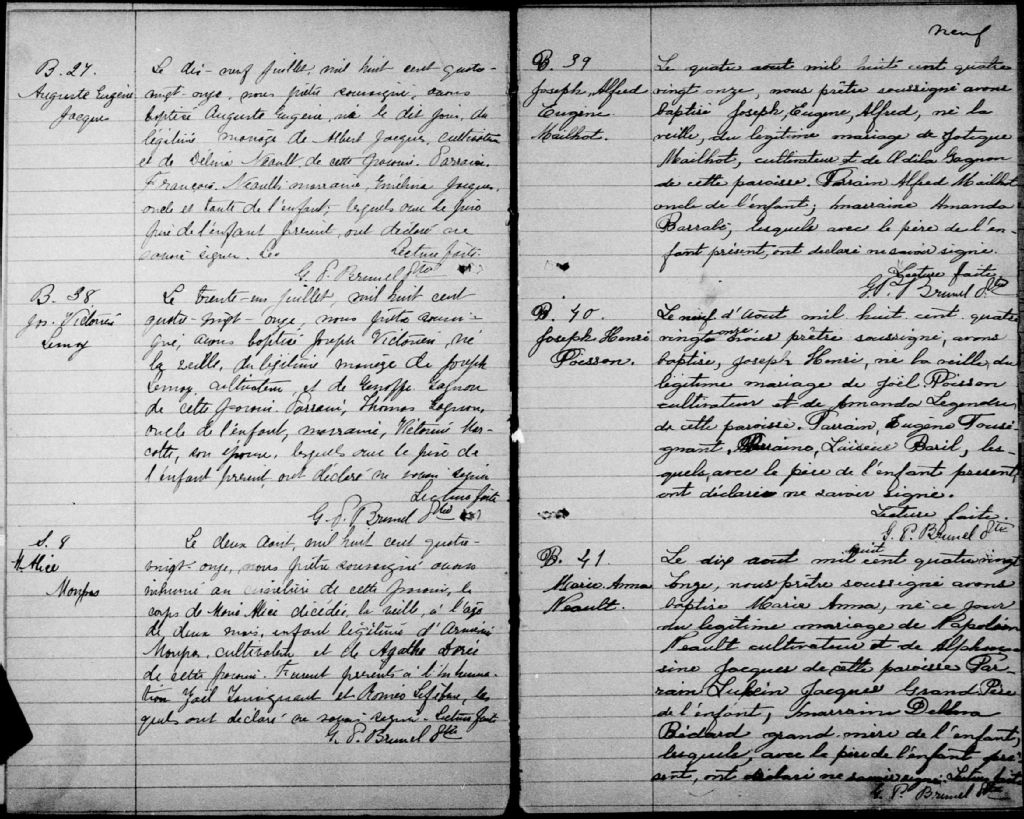 B. 27.
Auguste Eugène
Jacques
Le dix-neuf juillet, mil huit cent quatre-
vingt-onze, nous prêtre soussigné, avons
baptisé Auguste Eugène, né le dit jour, du
légitime mariage de Albert Jacques, cultivateur
et de Délina Neault de cette paroisse. Parrain
François Neault; marraine, Emélina Jacques,
oncle et tante de l'enfant, lesquels avec le
père de l'enfant présent, ont déclaré ne
savoir signer. Lecture faite.
G. P. Brunel Ptre
B. 38
Jos. Victorien
Lemay
Le trente-un juillet, mil huit cent
quatre-vingt-onze, nous prêtre soussi-
gné, avons baptisé Joseph Victorien, né
la veille, du légitime mariage de Joseph
Lemay, cultivateur, et de Gagnon
de cette paroisse. Parrain, Thomas Gagnon,
oncle de l'enfant, marraine, Victorine Mar-
cotte, son épouse, lesquels avec le père de
l'enfant présent, ont déclaré ne savoir signer
Lecture faite
G. P. Brunel Ptre
S. 8
M. Alice
Le deux aout, mil huit cent quatre-
vingt-onze, nous prêtre soussigné avons
inhumé au cimetière de cette paroisse, le
corps de Marie Alice décédée la veille, à l'âge
de deux mois, enfant légitime d'
cultivateur et de Agathe Doré
de cette paroisse. Furent présents à l'inhuma-
tion Joël Tousignant et Roméo Lefebvre, les-
quels ont déclaré ne savoir signer. Lecture faite
G. P. Brunel Ptre
neuf
B. 39
Joseph, Alfred
Eugène
Mailhot.
Le quatre aout mil huit cent quatre
vingt onze, nous prêtre soussigné avons
baptisé Joseph, Eugène, Alfred, né la
veille, du légitime mariage de
Mailhot, cultivateur et de Odila Gagnon
de cette paroisse. Parrain Alfred Mailhot
oncle de l'enfant; marraine Amanda
Barrabé; lesquels avec le père de l'en-
fant présent, ont déclaré ne savoir signé.
Lecture faite
G. P. Brunel Ptre
B. 40
Joseph Henri
Poisson.
Le neuf d'Aout mil huit cent quatre
vingt onze nous prêtre soussigné, avons
baptisé, Joseph Henri, né la veille du
légitime mariage de Joël Poisson
cultivateur et de Amanda Legendre
de cette paroisse. Parrain, Eugène Tousi-
gnant, Marraine, Luiseur Baril, les-
quels, avec le père de l'enfant présent,
ont déclaré ne savoir signé.
Lecture faite.
G. P. Brunel Ptre
B. 41
Marie Anna
Neault.
Le dix aout mil huit cent quatre vingt
onze, nous prêtre soussigné avons
baptisé Marie Anna, né ce jour
du légitime mariage de Napoléon
Neault cultivateur et de Alphon-
sine Jacques de cette paroisse Par-
rain Jacques Grand Père
de l'enfant, marraine Delima
Bédard grand-mère de l'enfant,
lesquels, avec le père de l'enfant pré-
sent, ont déclaré ne savoir signé. Lecture faite
G. P. Brunel Ptre